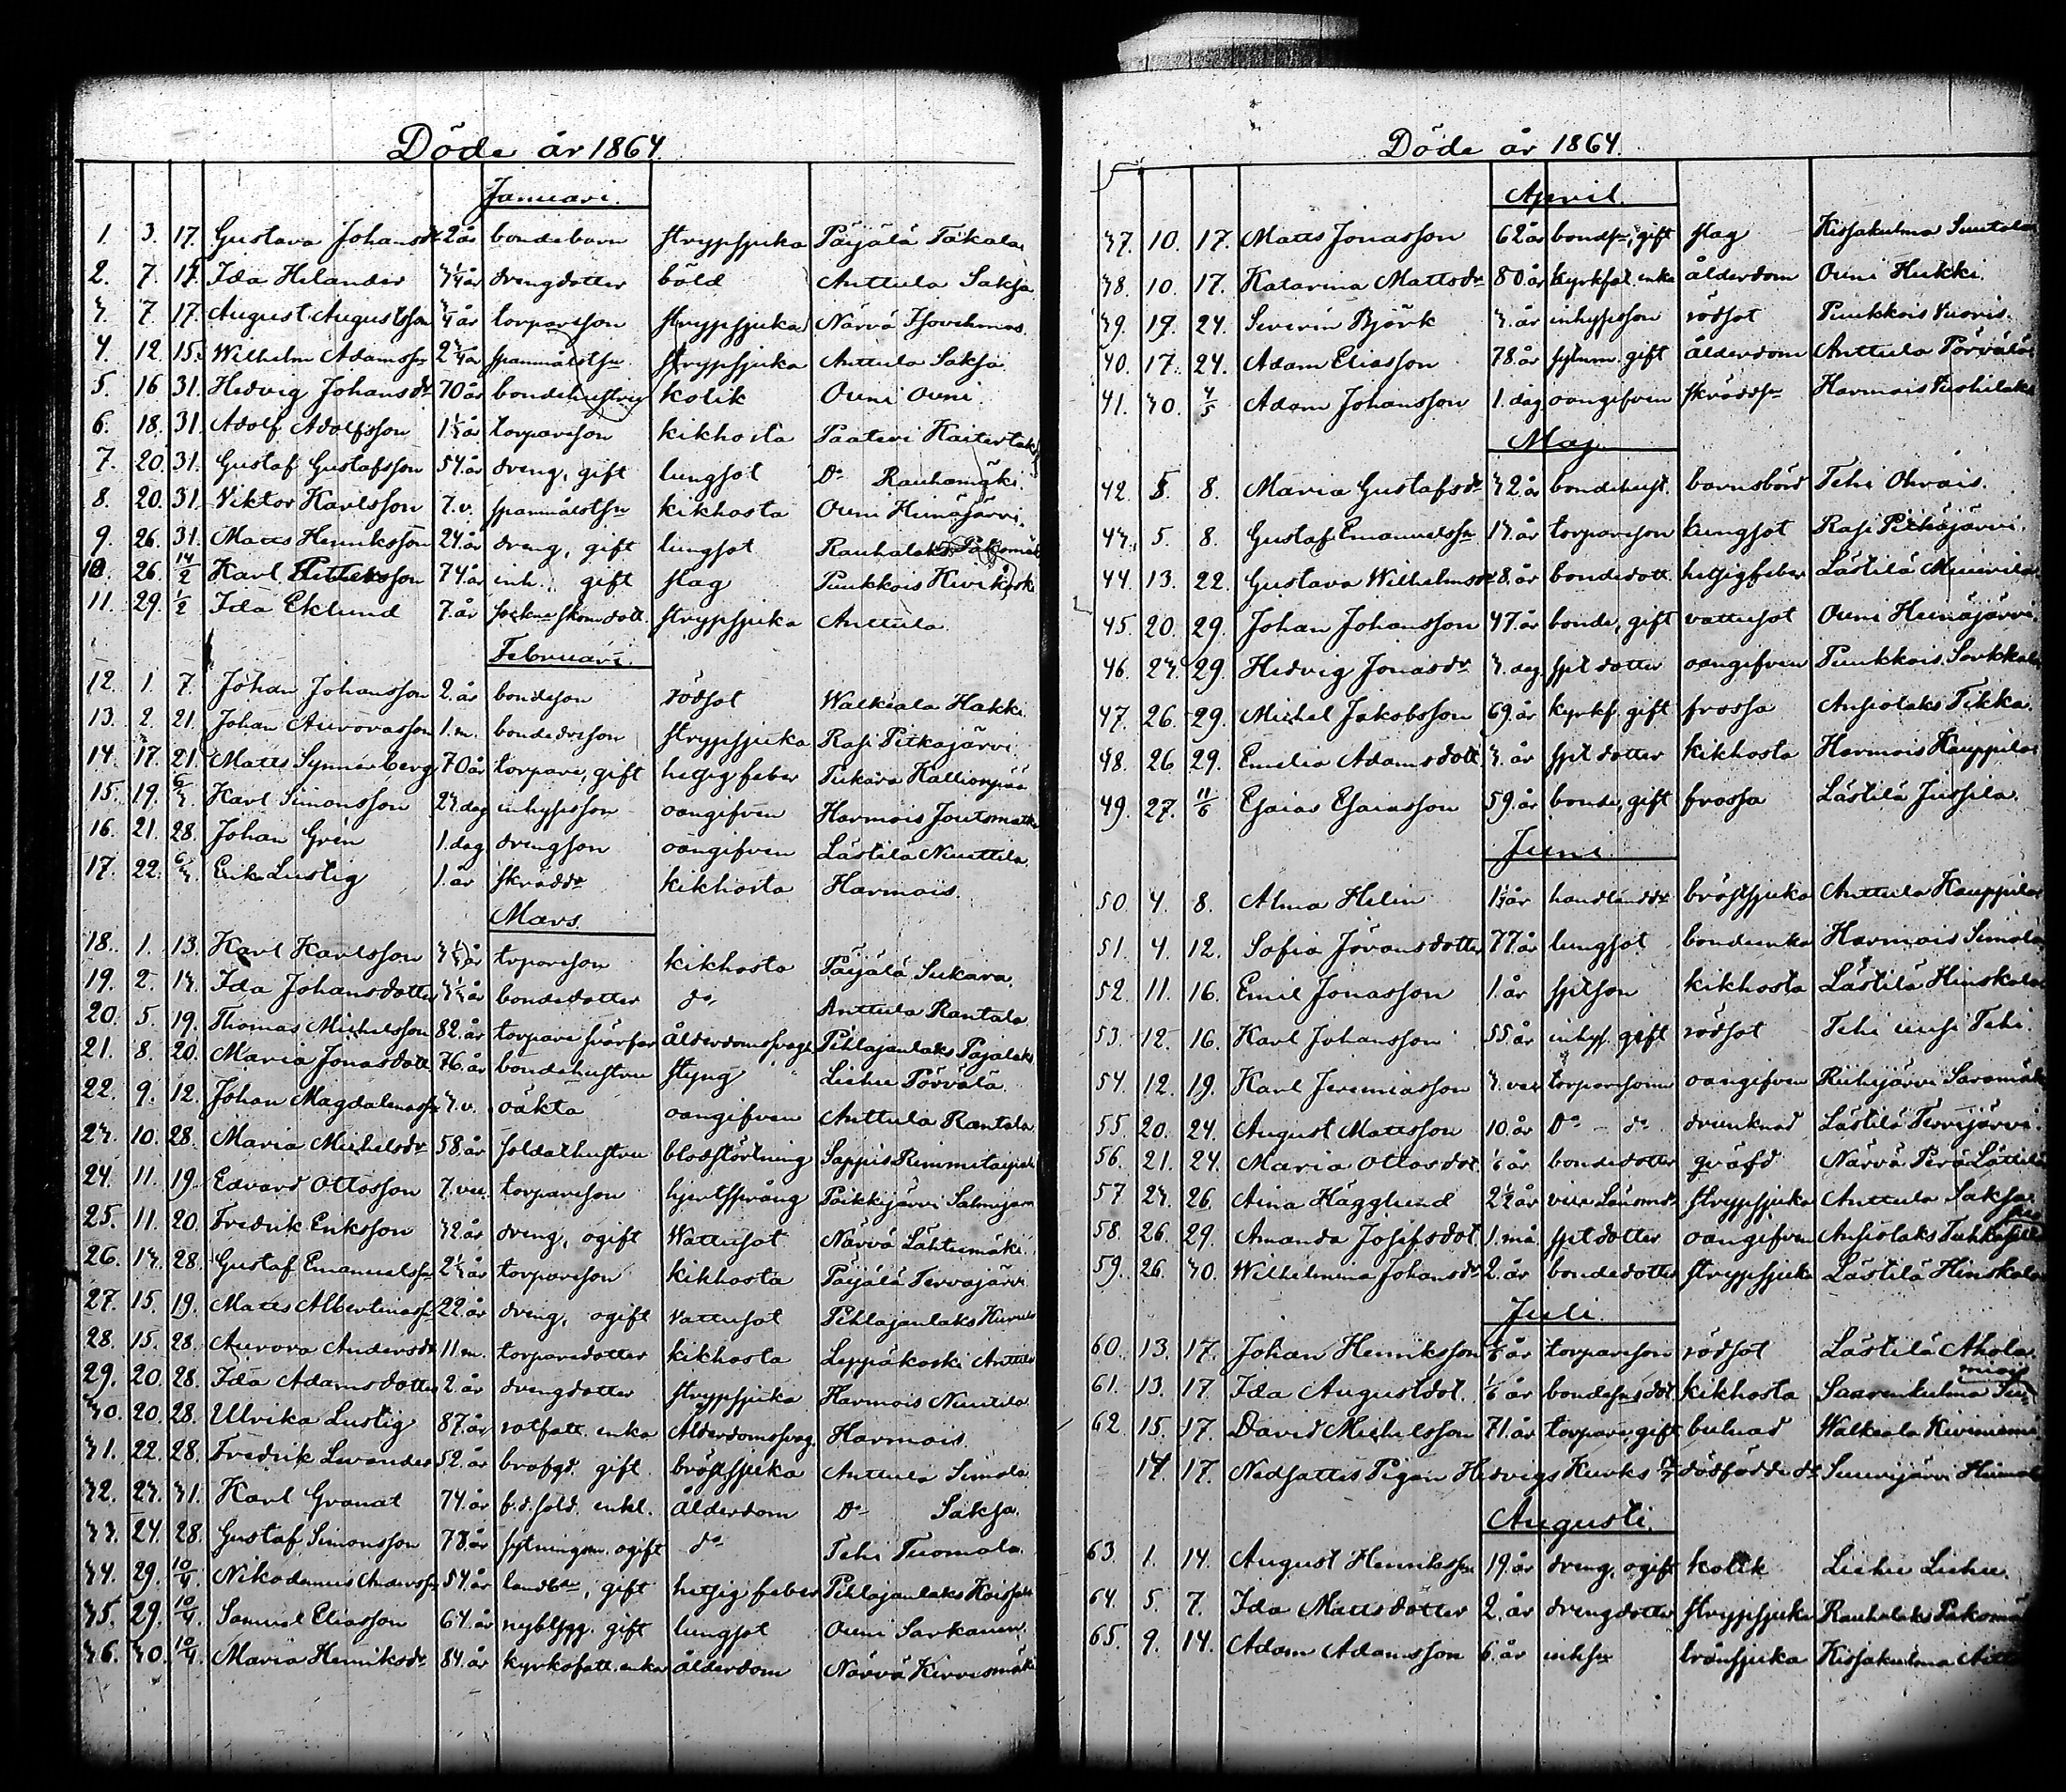 Döde år 1864.
Januari.
1. 3. 17. Gustava Johansdr 2 år bondebarn strypsjuka Päijälä Takala
2. 7. 17. Ida Helander 3/4 år drengdotter böld Anttula Saksa
3. 7. 17. August Augustsson 3/4 år torpareson strypsjuka Närvä
4. 12. 15. Wilhelm Adamssn 2 3/4 år spanmålstsn strypsjuka Anttula Saksa
5. 16 31. Hedvig Johansdr 70 år bondehustru kolik Ouni Ouni.
6. 18. 31. Adolf Adolfsson torpareson kikhosta Paateri
7. 20. 31. Gustaf Gustafsson 54. år dreng, gift lungsot Do Rauhamäki.
8. 20. 31. Viktor Karlsson 7. v. spanmålstsn kikhosta Ouni Heinäjärvi.
9. 26. 31. Matts Henriksson 24. år dreng, gift lungsot Rauhalaks Pakomäk
10. 26. 14/2 Karl Pettersson 74. år inh. gift slag Puukkois Kivikosk
11. 29. 1/2 Ida Eklund 7. år strypsjuka Anttula
Februari.
12. 1. 7. Johan Johansson 2. år bondeson rödsot Walkeala Hakki
13. 2. 21. Johan Aurorasson 1. m. strypsjuka Rasi Pitkäjärvi
14. 17. 21. Matts Synnerberg 70 år torpare, gift hetsig feber Tukara Kallionpää
15. 19. 6/3 Karl Simonsson 23. dag inhysesson oangifven Harmois Joutsmäki
16. 21. 28. Johan Grén 1. dag drengson oangifven Lästilä Nuuttila
17. 22. 6/3. Erik Lustig 1. år kikhosta Harmois.
Mars.
18. 1. 13. Karl Karlsson torpareson kikhosta Päijälä Sukara.
19. 2. 13. Ida Johansdotter bondedotter do Anttula Rantala
20. 5. 19. Thomas Michelsson 82. år torpare svärfar ålderdomssvagh Pihlajanlaks Pajalaks
21. 8. 20. Maria Jonasdott 76. år bondehustru styng Liehu Pörvälä
22. 9. 12. Johan Magdalenassn 3. v. oäkta oangifven Anttula Rantala
23. 10. 28. Maria Michelsdr 58. år soldathustru blodstörtning Sappis
24. 11. 19. Edvard Ottosson 7. vec. torpareson hjertsprång Poikkijärvi
25. 11. 20. Fredrik Eriksson 32. år dreng, ogift Wattusot Närvä Lähteemäki
26. 13. 28. Gustaf Emanuelssn torpareson kikhosta Päijälä Tervajärvi
27. 15. 19. Matts Albertinassn 22. år dreng, ogift vattusot Pihlajanlaks
28. 15. 28. Aurora Andersdr 11. m. torparedotter kikhosta Leppäkoski Anttila
29. 20. 28. Ida Adamsdotter 2. år drengdotter strypsjuka Harmois Nuutila
30. 20. 28. Ulrika Lustig 87. år rotfatt. enka Ålderdomssvag. Harmois.
31. 22. 28. Fredrik Levander 52. år gift. bröstsjuka Anttula Simola
32. 23. 31. Karl Granat 74. år f.d. sold. enkl. ålderdom Do Saksa.
33. 24. 28. Gustaf Simonsson 78. år sytningsm. ogift do Tehi Tuomala
34. 29. 10/4. Nikodemus Anderssn 54. år landbde, gift hetsig feber Pihlajanlaks
35. 29. 10/4. Samuel Eliasson 64. år gift lungsot Ouni Sarkanen
36. 30. 10/4 Maria Henriksdr 84. år kyrkofatt. enka ålderdom Närvä Kirrismäki
Döde år 1864.
April.
37. 10. 17. Matts Jonasson 62 år gift slag Kissakulma Suutala
38. 10. 17. Katarina Mattsdr 80 år kyrkfat. enka ålderdom Ouni Hukki.
39. 19. 24. Severin Björk 3. år inhysesson rödsot Puukkois Vuoris.
40. 17. 24. Adam Eliasson 78. år sytnm. gift ålderdom Anttula Pörvälä
41. 30. 4/5 Adam Johansson 1. dag oangifven skräddsn Harmois
Maj.
42. 5. 8. Maria Gustafsdr 32. år bondehust. barnsbörd Tehi Ohrais.
43. 5. 8. Gustaf Emanuelssn 13. år torpareson lungsot Rasi Pitkäjärvi.
44. 13. 22. Gustava Wilhelmsdr 8. år bondedott. hetsigfeber Lästilä
45. 20. 29. Johan Johansson 47. år bonde, gift vattusot Ouni Heinäjärvi.
46. 23. 29. Hedvig Jonasdr 3. dag spst dotter oangifven Puukkois Sarkkala
47. 26. 29. Michel Jakobsson 69. år kyrkf. gift frossa Ansiolaks Tikka.
48. 26 29. Emelia Adamsdott 3. år spst dotter kikhosta Harmois Kauppila
49. 27. 11/6 Esaias Esaiasson 59. år bonde, gift frossa Lästilä Jussila.
Juni.
50 4. 8. Alma Helin handlandedr bröstsjuka Anttula Kauppila
51. 4. 12. Sofia Jöransdotter 77. år lungsot bondeenka Harmois Simola
52. 11. 16. Emil Jonasson 1. år spstson kikhosta Lästilä Hinskala
53. 12. 16. Karl Johansson 55. år inhys. gift rödsot Tehi uusi Tehi.
54. 12. 19. Karl Jeremiasson 3. vec torpareson oangifven Ruhijärvi Saramäki
55. 20. 24. August Mattsson 10. år Do - do drunknad Lästilä Tervijärvi.
56. 21. 24. Maria Ottosdot 1/6 år bondedotter qväfd Närvä Perä Lättilä
57. 23. 26. Aina Hägglund 2 1/2 år vice Länsmdr strypsjuka Anttula Saksa
58. 26. 29. Amanda Josefsdot. 1. må. spst dotter oangifven Ansiolaks
59. 26. 30. Wilhelmina Johansdr 2. år bondedotter strypsjuka Lästilä Hinskala
Juli.
60. 13. 17. Johan Henriksson torpareson rödsot Lästilä Ahola.
61. 13. 17. Ida Augustdot. 1/6 år bondesnsdot. kikhosta Saarenkulma
62. 15. 17. David Michelsson 71. år torpare, gift bulnad Walkeala Kiviniemi
17. 17. Nedsattes Pigan Hedvigs Kurks dödfödde dr Suurijärvi
Augusti.
63. 1. 14. August Henrikssn 19. år dreng, ogift kolik Liehu Liehu.
64. 5. 7. Ida Mattsdotter 2. år drengdotter strypsjuka Rauhalaks Pakomä
65. 9. 14. Adam Adamsson 6. år inhsn Kissakulma